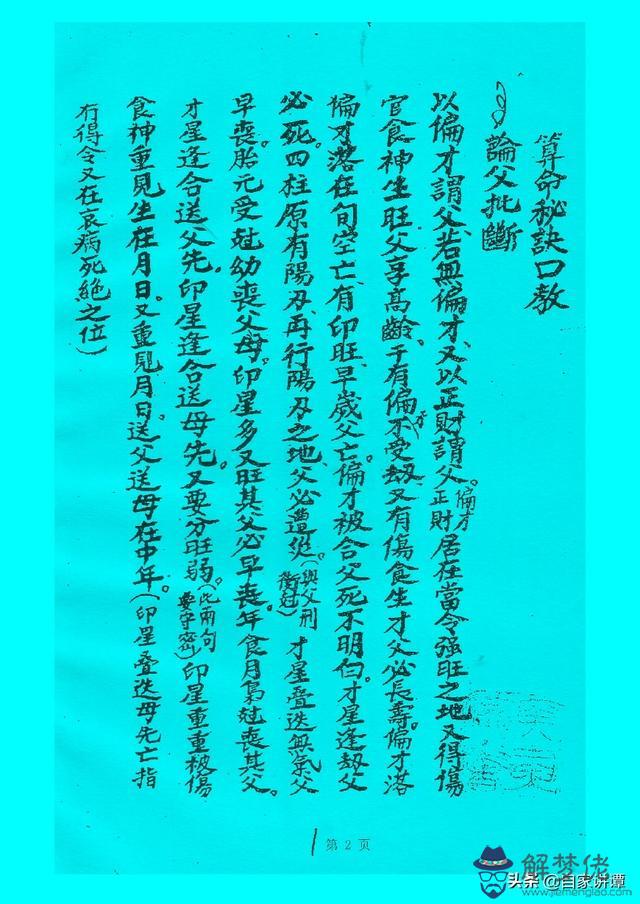 算命秘訣口教
論父批斷
以偏才謂父，若無偏才，又以正財謂父。偏才正財居在當令强旺之地，又得傷
官食神生旺，父享高齡。干有偏才不受劫，又有傷食生才父必長壽。偏才落
偏才落在旬空亡，有印旺，早歲父亡。偏才被合父死不明白。才星逢劫父
必死。四柱原有陽刃，再行陽刃之地，父必遭災。（與父刑衝尅）才星叠迭無氣父
早喪。胎元受尅幼喪父母。印星多又旺其父必早喪。年食月梟尅喪其父。
才星逢合送父先。印星逢合送母先。又要分旺弱。（此兩句要守密）印星重重被傷
食神重見生在月日。又重見月日。送父送母在中年。（印星叠迭母先亡指
有得令又在衰病死絶之位）
第 2 页
解梦佬
www.jiemenglao.com
头条 @自家讲谭